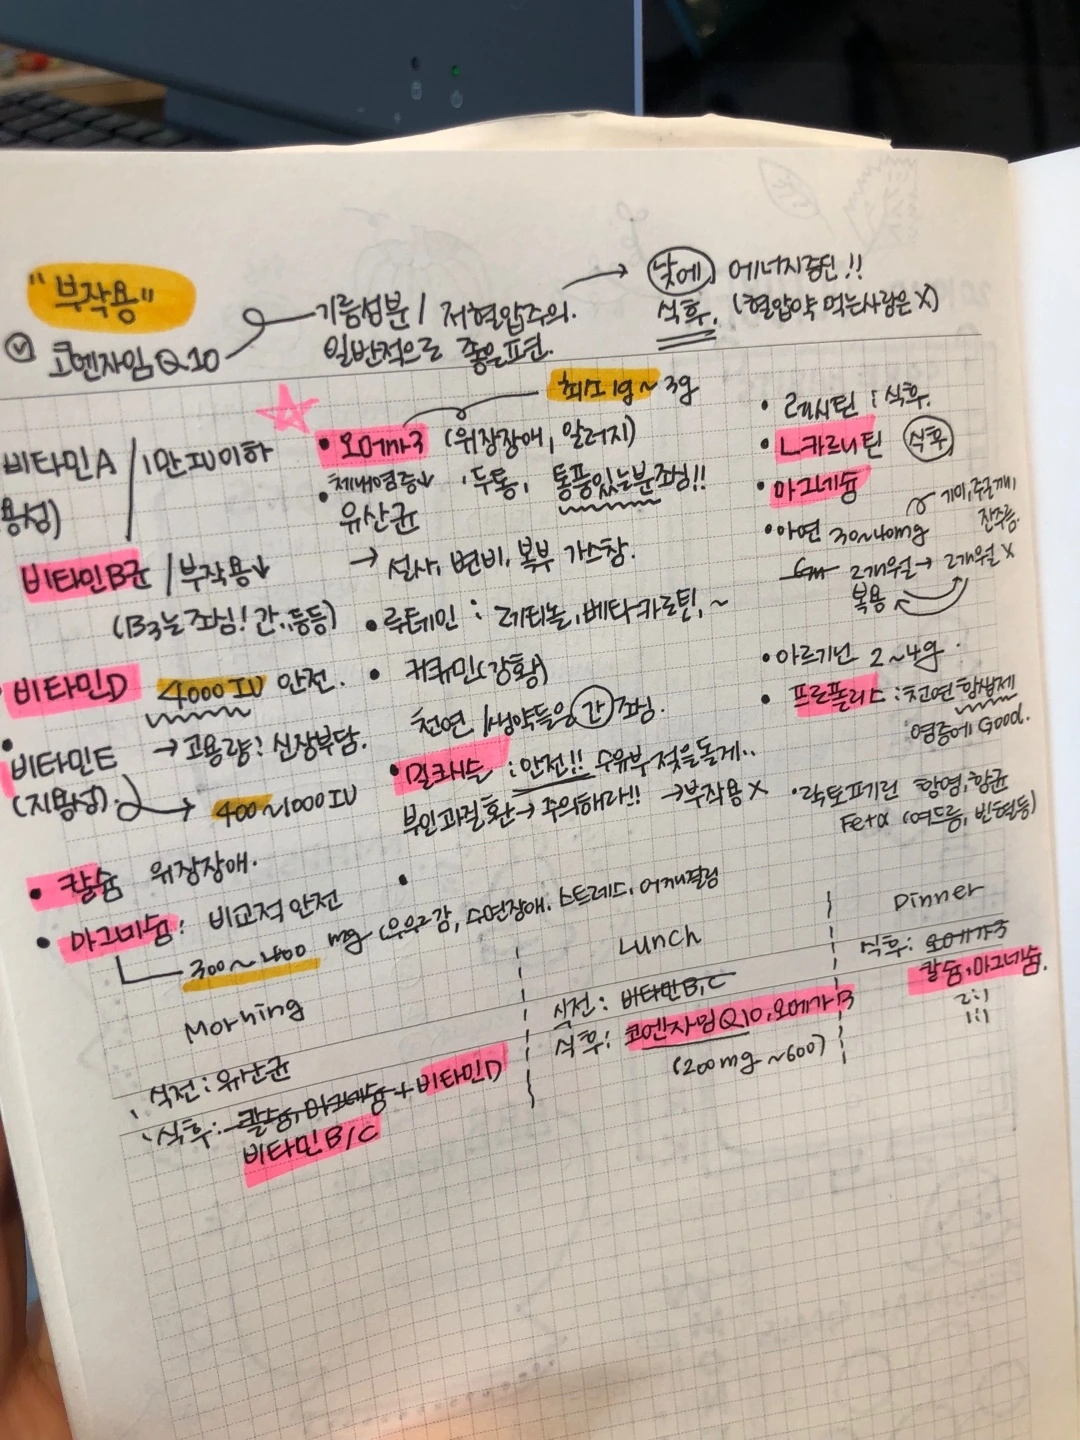 "부작용"
코엔자임Q10
기능성분 / 저혈압주의.
일반적으로 좋은표현.
낮에 에너지증진!!
식후. (혈압약 먹는사람은 X)
비타민A / 1만IU이하
용성)
비타민B군 / 부작용↓
(B3는 조심! 간,등등)
비타민D 4000IU 안전.
→고용량: 신장부담.
비타민E
(지용성). → 400~1000IU
• 칼슘 위장장애.
• 마그네슘: 비교적 안전
300~400 mg (우울감, 수면장애, 스트레스, 어깨결림
최소1g~3g
• 오메가3 (위장장애, 알러지)
• 체내염증↓ ·두통, 통풍있는분조심!!
유산균
→ 설사, 변비, 복부 가스참.
• 루테인 : 레티놀, 베타카로틴, ~
• 커큐민(강황)
천연 /생약들은 간 조심.
• 밀크씨슬 : 안전!! 수유부 젖을돌게..
부인과질환→주의해라!! →부작용 X
• 레시틴 : 식후.
• L카르니틴 식후
• 마그네슘
• 아연 30~40mg 기미,주근깨,
잔주름
2개월→2개월 X
복용
• 아르기닌 2~4g
• 프로폴리스 : 천연 항생제
염증에 Good.
• 락토페린 항염, 항균
Fe+α (여드름, 빈혈등)
Morning
식전: 유산균
식후: 칼슘, 마그네슘 + 비타민D
비타민B/C
Lunch
식전: 비타민B,C
식후: 코엔자임Q10, 오메가3
(200mg ~600)
Dinner
식후: 오메가3
칼슘, 마그네슘.
2:1
1:1